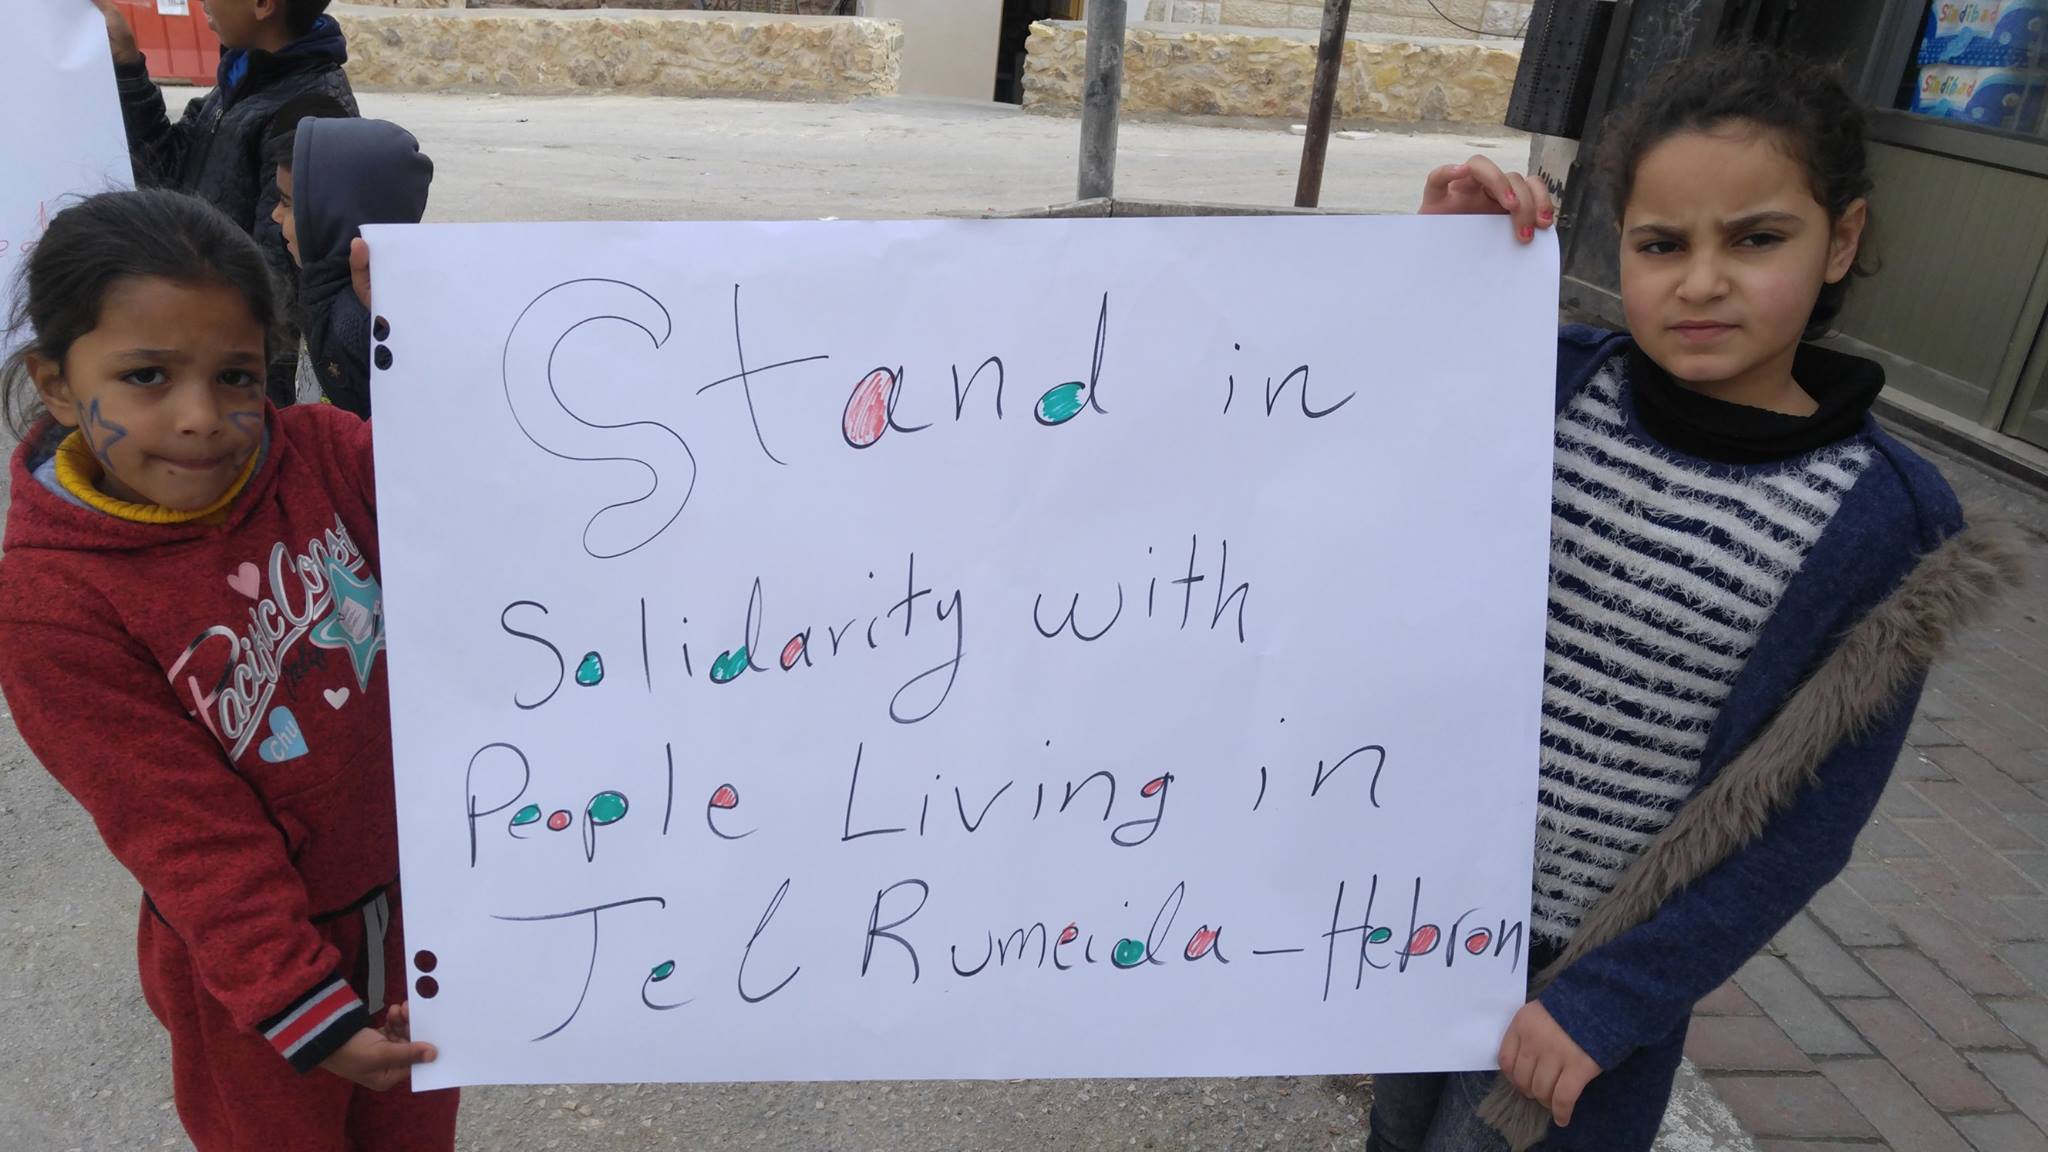 Stand in
Solidarity with
People Living in
Tel Rumeida-Hebron
Pacific Coast
chu
Sindibad
Sindibad